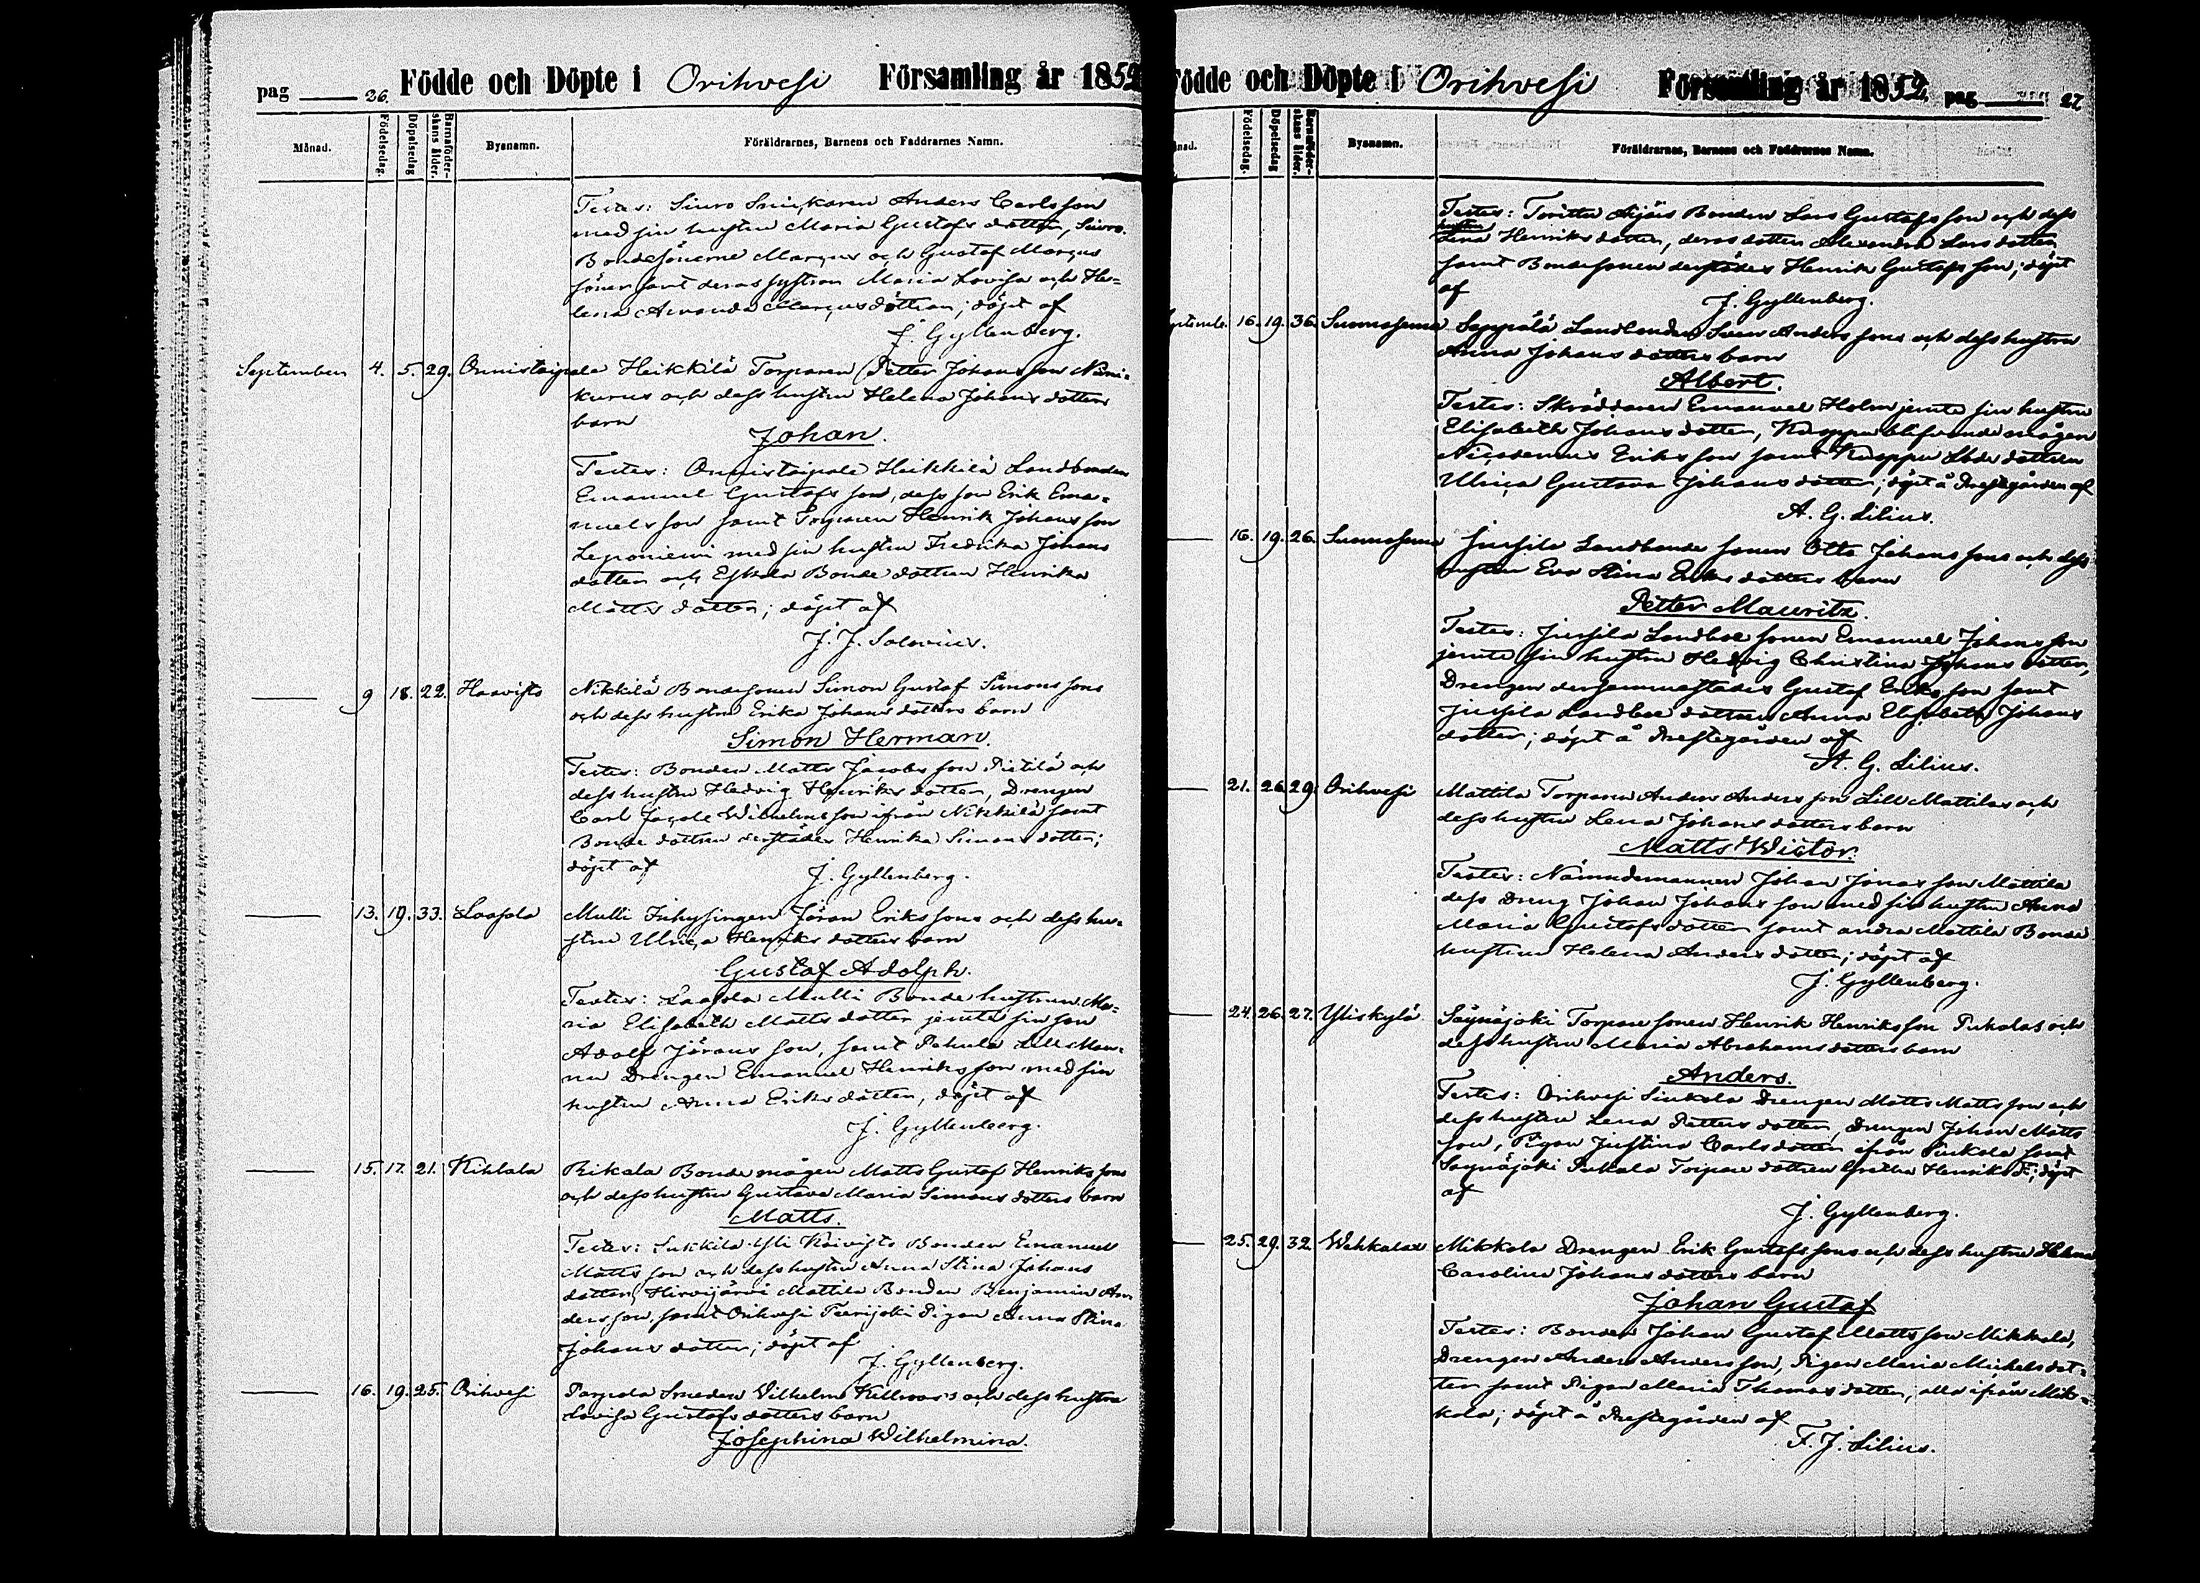 pag 26. Födde och Döpte i Orihvesi Församling år 1852
Månad. Födelsedag. Döpelsedag Barnaföderskans ålder. Bysnamn. Föräldrarnes, Barnens och Faddrarnes Namn.
Testes: Siuro Snickaren Anders Carlsson
med sin hustru Maria Gustafs dotter, Siuro
Bondesönerne Marcus och Gustaf Marcus
söner samt deras systrar Maria Lovisa och He-
lena Amanda Marcus döttrar; döpt af
J. Gyllenberg.
September 4. 5. 29. Onnistaipale Heikkilä Torparen Petter Johansson Niemi-
och dess hustru Helena Johans dotters
barn
Johan.
Testes: Onnistaipale Heikkilä Landbonden
Emanuel Gustafsson, dess son Erik Ema-
nuelsson samt Torparen Henrik Johansson
Leponiemi med sin hustru Fredrika Johans
dotter och Eskola Bonde dottren Henrika
Matts dotter; döpt af
J. J. Salovius.
9 18. 22. Haavisto Nikkilä Bondesonen Simon Gustaf Simonssons
och dess hustru Erika Johans dotters barn
Simon Herman.
Testes: Bonden Matts Jacobsson Pietilä och
dess hustru Hedvig Henriks dotter, Drengen
Carl Jacob Wilhelmsson ifrån Nikkilä samt
Bonde dottren derstädes Henrika Simons dotter;
döpt af J. Gyllenberg.
13. 19. 33. Laasola Mulli Inhysingen Jöran Erikssons och dess hu-
stru Ulrica Henriks dotters barn
Gustaf Adolph.
Testes: Laasola Mulli Bonde hustrun Ma-
ria Elisabeth Matts dotter jemte sin son
Adolf Jöransson, samt Pakula Lill Man-
nu Drengen Emanuel Henriksson med sin
hustru Anna Eriks dotter, döpt af
J. Gyllenberg.
15. 17. 21. Kihlala Rikala Bonde mågen Matts Gustaf Henrikssons
och dess hustru Gustava Maria Simons dotters barn
Matts.
Testes: Sukkila Yli Koivisto Bonden Emanuel
Mattsson och dess hustru Anna Stina Johans
dotter, Hirvijärvi Mattila Bonden Benjamin An-
dersson, samt Orihvesi Teerijoki Pigan Anna Stina
Johans dotter; döpt af
J. Gyllenberg.
16. 19. 25. Orihvesi Smeden Wilhelm och dess hustru
Lovisa Gustafs dotters barn
Josephina Wilhelmina.
Födde och Döpte i Orihvesi Församling år 1852. pag 27
Månad. Födelsedag. Döpelsedag Barnaföderskans ålder. Bysnamn. Föräldrarnes, Barnens och Faddrarnes Namn.
Testes: Bonden Lars Gustafsson och dess
hustru
Lena Henriks dotter, deras dotter Alexandra Lars dotter
samt Bondesonen derstädes Henrik Gustafsson; döpt
af
J. Gyllenberg.
September 16. 19. 36. Suomasema Seppälä Landbonden Sven Anderssons och dess hustru
Anna Johans dotters barn
Albert.
Testes: Skräddaren Emanuel Holm jemte sin hustru
Elisabeth Johans dotter, Kroppu blifvande mågen
Nicodemus Eriksson samt Kroppu dottren
Ulrica Gustava Johans dotter; döpt å Prestegården af
A. G. Lilius.
16. 19. 26. Suomasema Jussila Landbonde sonen Otto Johanssons och dess
hustru Eva Stina Eriks dotters barn
Petter Mauritz.
Testes: Jussila Landboe sonen Emanuel Johansson
jemte sin hustru Hedvig Christina Johans dotter,
Drengen dersammastädes Gustaf Eriksson samt
Jussila Landboe dottren Anna Elisabeth Johans
dotter; döpt å Prestegården af
A. G. Lilius.
21. 26. 29. Orihvesi Mattila Torparen Anders Andersson Lill Mattilas och
dess hustru Lena Johans dotters barn
Matts Wictor.
Testes: Nämndemannen Johan Jonasson Mattila
dess Dreng Johan Johansson med sin hustru Anna
Maria Gustafs dotter samt andra Mattila Bonde
hustrun Helena Anders dotter; döpt af
J. Gyllenberg.
24. 26. 27. Yliskylä Säynäjoki Torpare sonen Henrik Henriksson Pukalas och
dess hustru Maria Abrahams dotters barn
Anders.
Testes: Orihvesi Siukola Drengen Matts Mattsson och
dess hustru Lena Petters dotter, Drengen Johan Matts
son, Pigan Justina Carls dotter ifrån samt
Säynäjoki Pukala Torpare dottren Gretha Henriks D:; döpt
af
J. Gyllenberg.
25. 29. 32. Wehkalax Mikkola Drengen Erik Gustafssons och dess hustru Helena
Carolina Johans dotters barn
Johan Gustaf
Testes: Bonden Johan Gustaf Mattsson Mikkola,
Drengen Anders Andersson, Pigan Maria Michels dot-
ter samt Pigan Maria Thomas dotter, alla ifrån Mik-
kola; döpt å Prestegården af
F. J. Lilius.